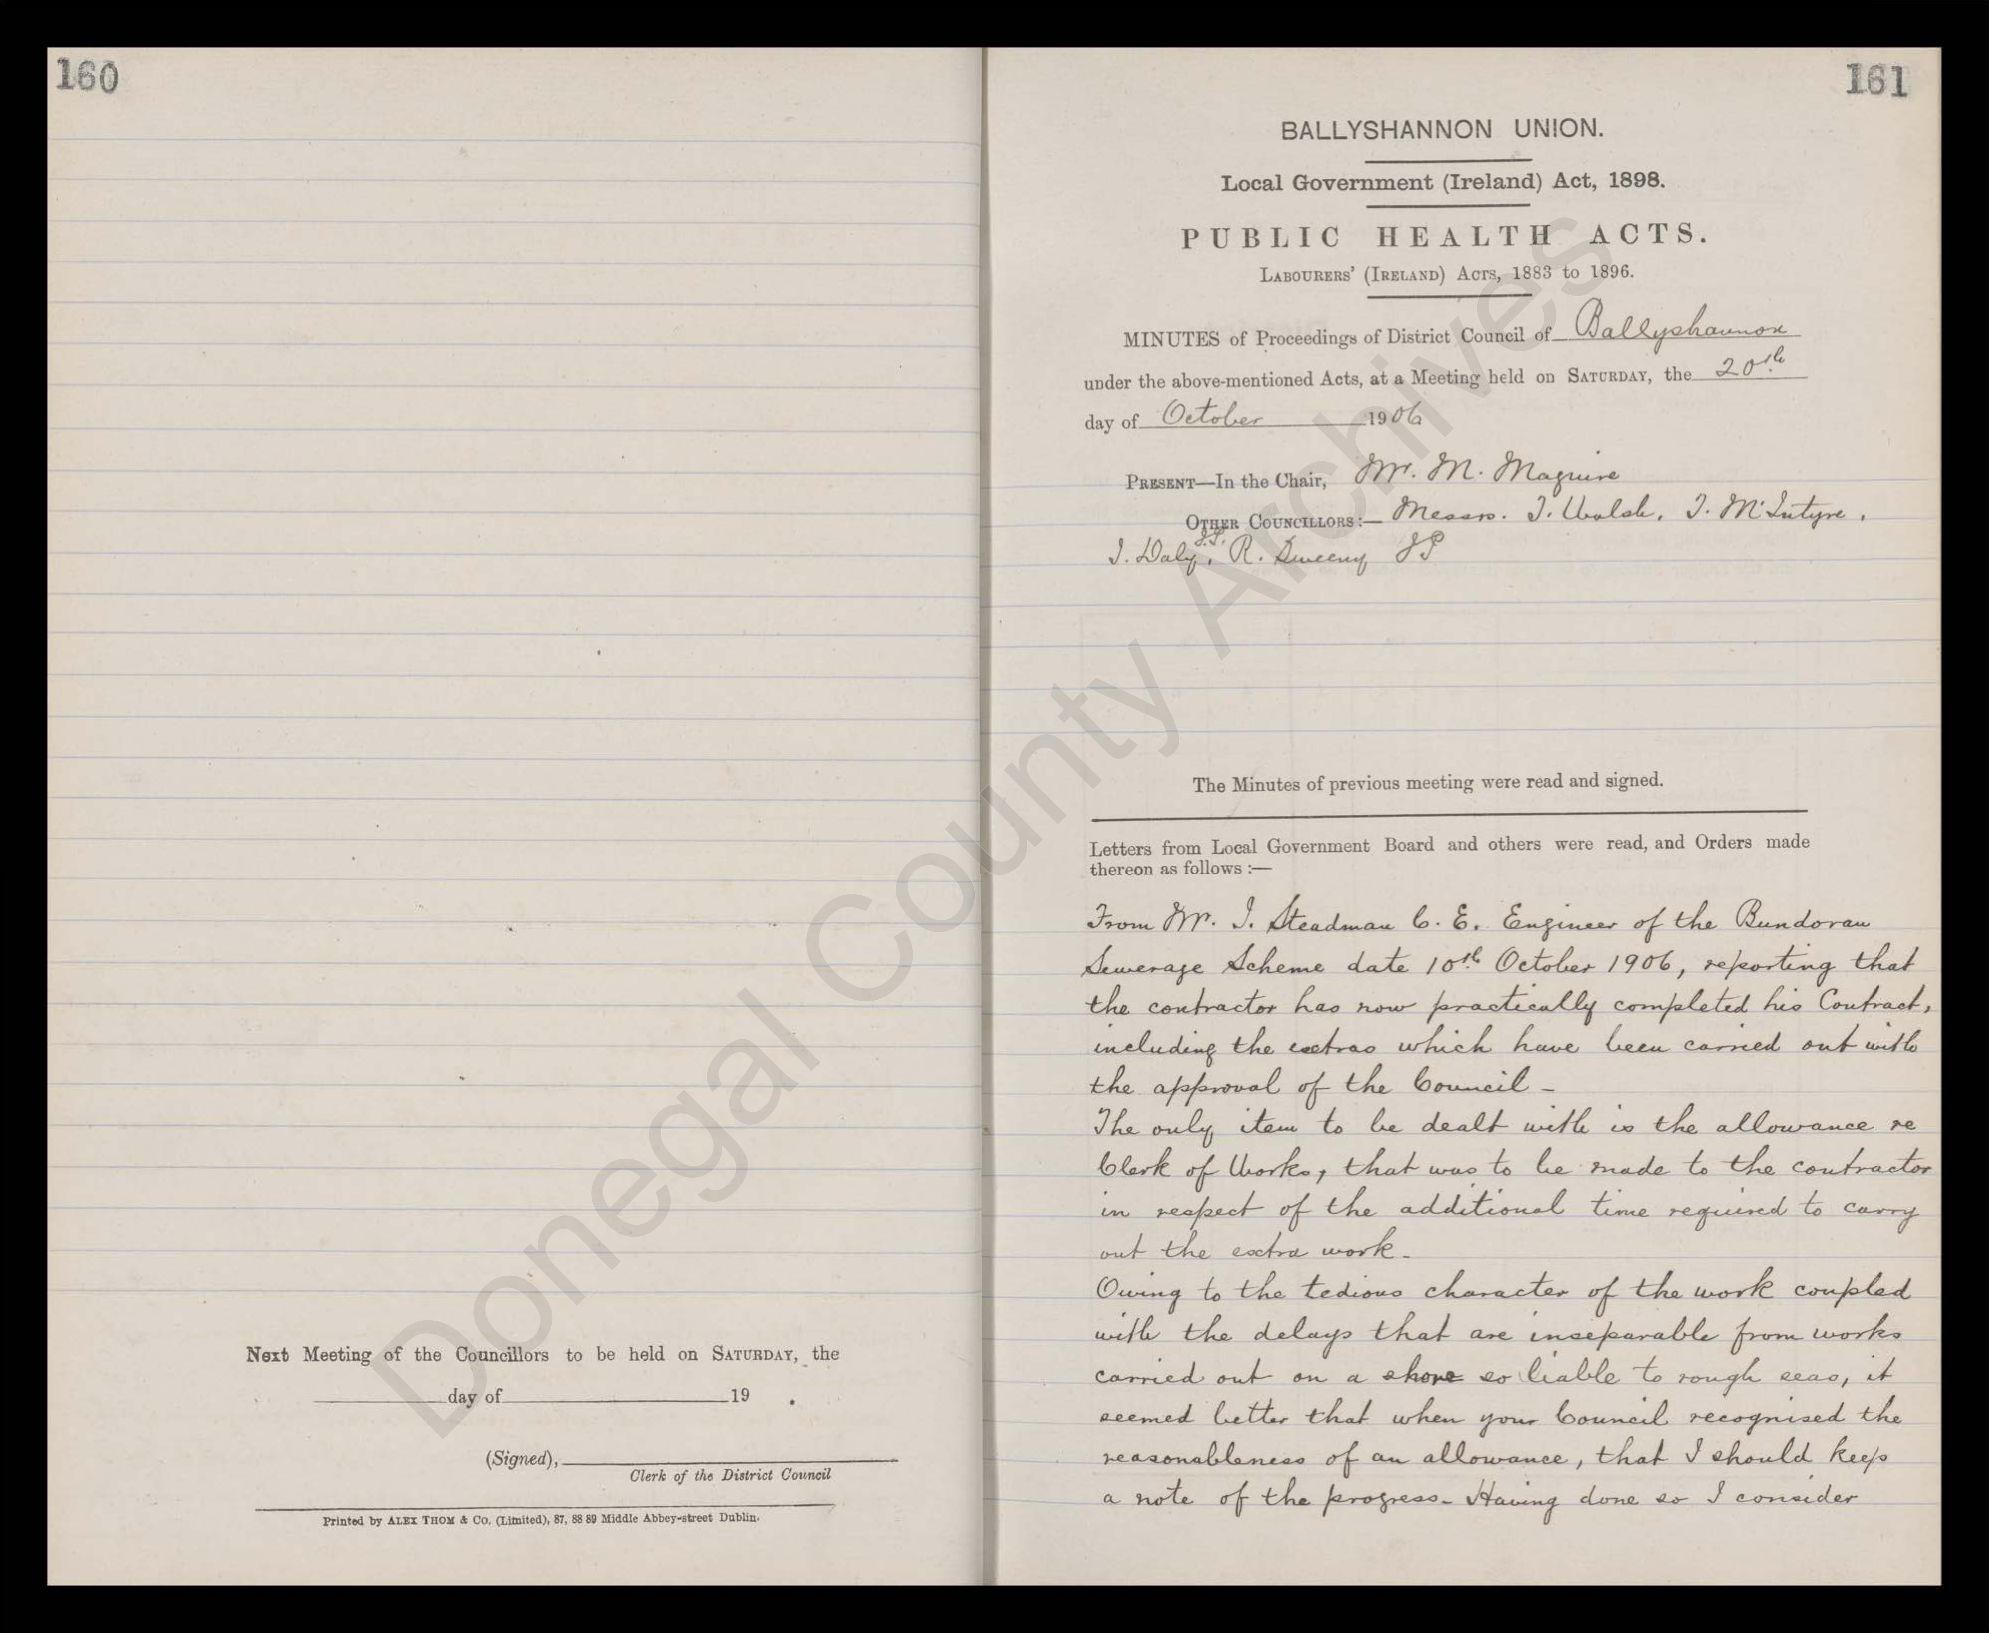 160
Next Meeting of the Councillors to be held on SATURDAY, the
day of 19 .
(Signed),
Clerk of the District Council
Printed by ALEX THOM & CO. (Limited), 87, 88 89 Middle Abbey-street Dublin.
161
BALLYSHANNON UNION.
Local Government (Ireland) Act, 1898.
PUBLIC HEALTH ACTS.
LABOURERS' (IRELAND) ACTS, 1883 to 1896.
MINUTES of Proceedings of District Council of Ballyshannon
under the above-mentioned Acts, at a Meeting held on SATURDAY, the 20th
day of October 1906
PRESENT—In the Chair, Mr. M. Maguire
OTHER COUNCILLORS:— Messrs. J. Walsh, J. McIntyre,
J. Daly J.P., R. Sweeny JP
The Minutes of previous meeting were read and signed.
Letters from Local Government Board and others were read, and Orders made
thereon as follows :—
From Mr. J. Steadman C. E. Engineer of the Bundoran
Sewerage Scheme date 10th October 1906, reporting that
the contractor has now practically completed his Contract,
including the extras which have been carried out with
the approval of the Council -
The only item to be dealt with is the allowance re
Clerk of Works, that was to be made to the contractor
in respect of the additional time required to carry
out the extra work -
Owing to the tedious character of the work coupled
with the delays that are inseparable from works
carried out on a shore so liable to rough seas, it
seemed better that when your Council recognised the
reasonableness of an allowance, that I should keep
a note of the progress - Having done so I consider
Donegal County Archives